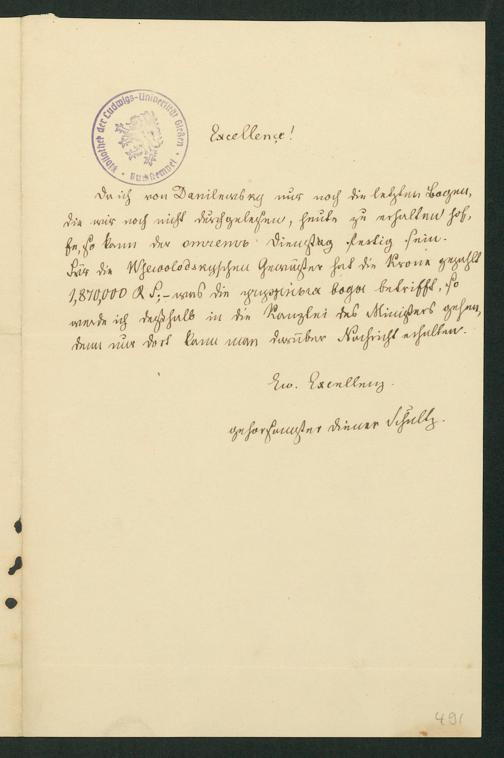 Bibliothek der Ludwigs-Universität Gießen
Excellenz!
Da ich von Danilewsky nur noch die letzten Bogen,
die wir noch nicht durchgelesen, heute zu erhalten hof,
fe, so kann der отчетъ Dienstag fertig sein.
Für die Wsewolodskyschen Gewässer hat die Krone gezahlt
1,870,000 R S,- was die воды betrifft, so
werde ich deßhalb in die Kanzlei des Ministers gehen,
denn nur dort kann man darüber Nachricht erhalten.
Ew. Excellenz.
gehorsamster Diener Schultz.
491